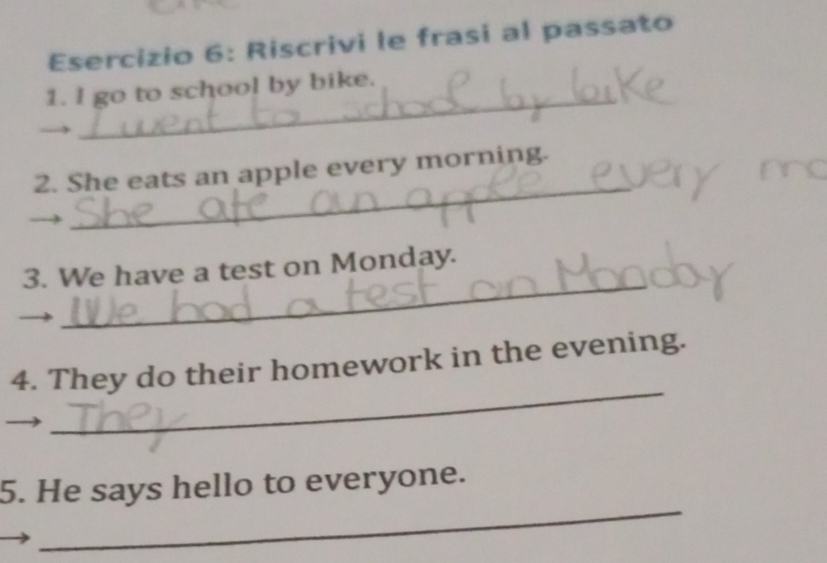 Esercizio 6: Riscrivi le frasi al passato
1. I go to school by bike.
→ I went to school by bike
2. She eats an apple every morning.
→ She ate an apple every mo
3. We have a test on Monday.
→ We had a test on Monday
4. They do their homework in the evening.
→ They
5. He says hello to everyone.
→